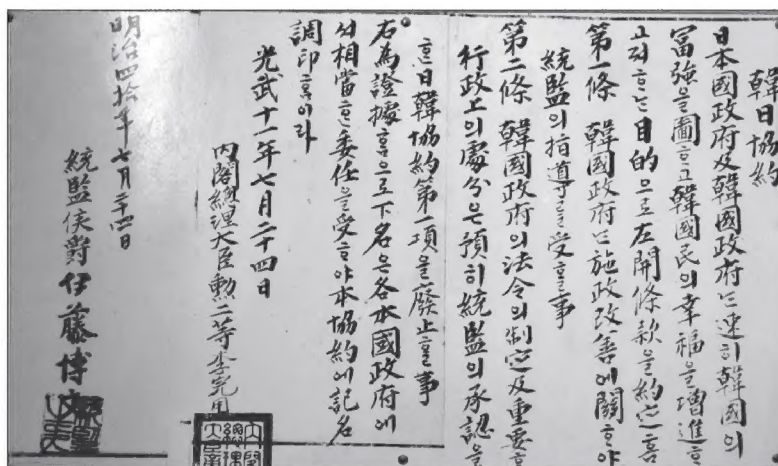 韓日協約
日本國政府及韓國政府는速히韓國의
富强을圖ᄒᆞ고韓國民의幸福을增進ᄒᆞ
고져ᄒᆞ는目的으로左開條款을約定홈
第一條 韓國政府는施政改善에關ᄒᆞ야
統監의指導를受ᄒᆞᆯ事
第二條 韓國政府의法令의制定及重要ᄒᆞᆫ
行政上의處分은預히統監의承認을
ᄒᆞᆫ日韓協約第一項을廢止ᄒᆞᆯ事
右爲證據홈으로下名은各本國政府에
셔相當ᄒᆞᆫ委任을受ᄒᆞ야本協約에記名
調印홈이라
光武十一年七月二十四日
內閣總理大臣勳二等李完用
明治四拾年七月二十四日
統監侯爵伊藤博文